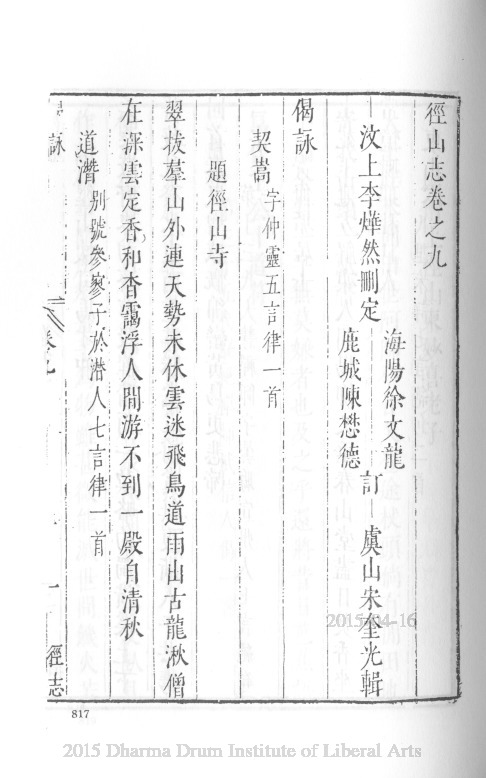 徑山志卷之九
汶上李燁然刪定
海陽徐文龍
鹿城陳懋德
訂
虞山宋奎光輯
偈詠
契嵩字仲靈五言律一首
題徑山寺
翠拔羣山外連天勢未休雲迷飛鳥道雨出古龍湫僧
在深雲定香和杳靄浮人間游不到一殿自清秋
道潛別號參寥子於潛人七言律一首
詠
徑志
817
2015-04-16
2015 Dharma Drum Institute of Liberal Arts